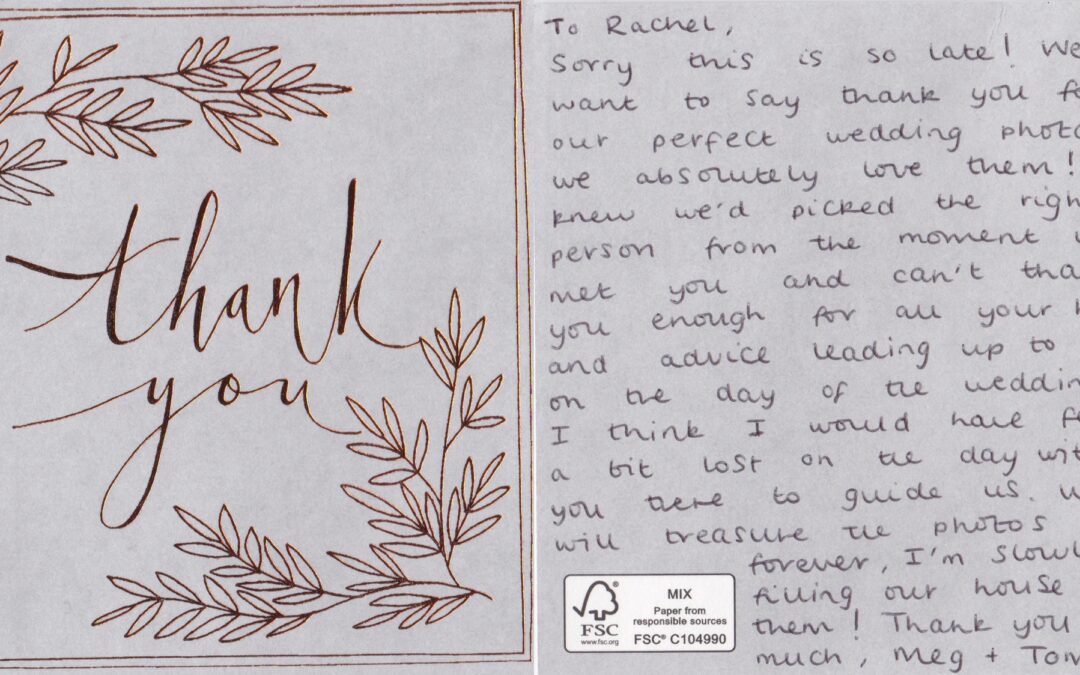 thank
you
To Rachel,
Sorry this is so late! We
want to say thank you
our perfect wedding
we absolutely love them!
knew we'd picked the
person from the moment
met you and can't
you enough for all your
and advice leading up to
on the day of the
I think I would have
a bit lost on the day
you there to guide us.
will treasure the photos
forever, I'm
filling our house
them! Thank you
much, Meg + Tom
FSC
www.fsc.org
MIX
Paper from
responsible sources
FSC® C104990